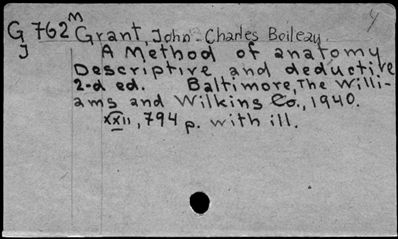 G 762 m Grant, John Charles Boileau.
J A Method of anatomy
Descriptive and deductive
2-d ed. Baltimore, The Willi-
ams and Wilkins Co., 1940.
xxii, 794 p. with ill.